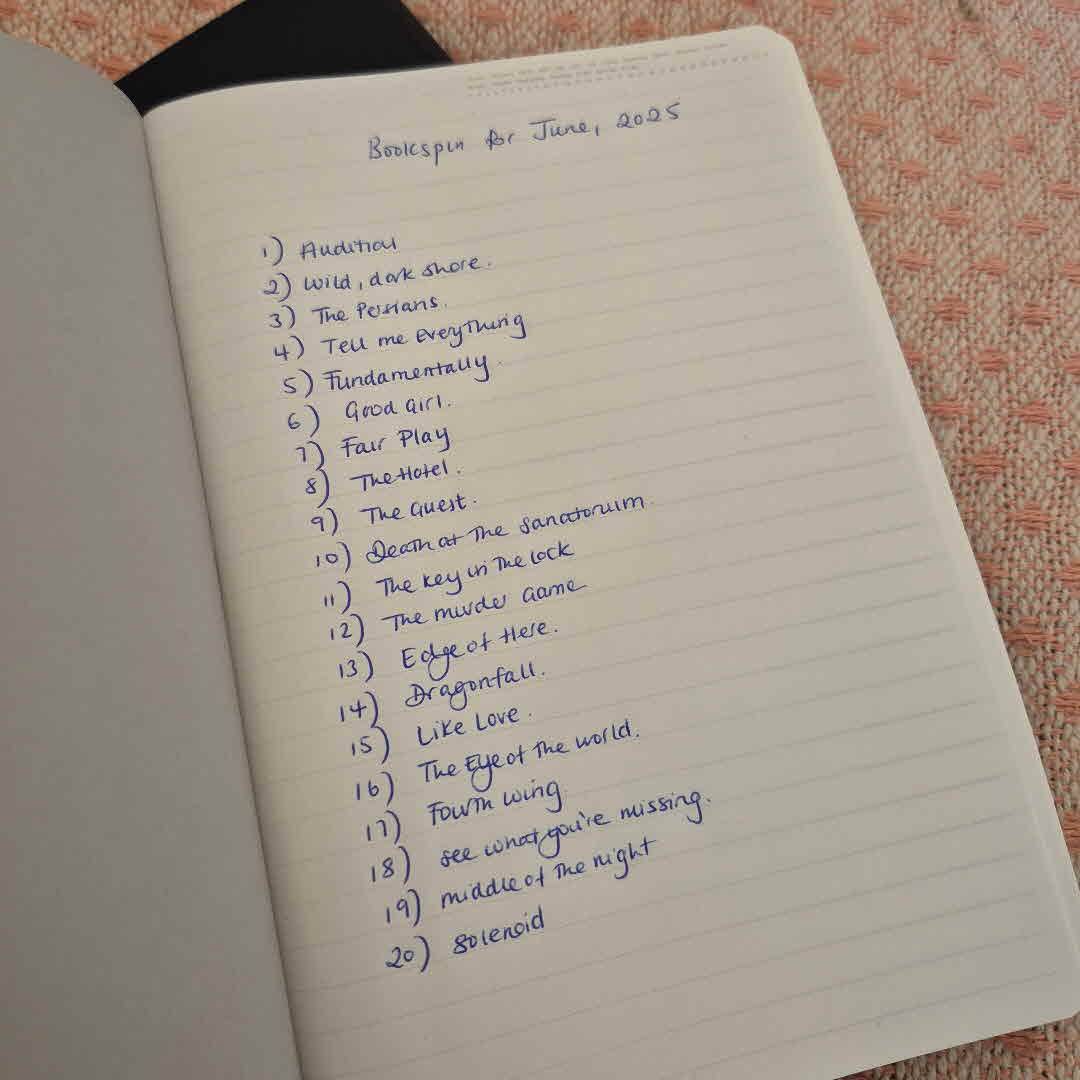 Bookspin for June, 2025
1) Audition
2) Wild, dark shore.
3) The Persians.
4) Tell me Everything
5) Fundamentally.
6) Good Girl.
7) Fair Play
8) The Hotel.
9) The Guest.
10) Death at the Sanatorium.
11) The Key in the Lock
12) The murder Game
13) Edge of Here.
14) Dragonfall.
15) Like Love.
16) The Eye of the world.
17) Fourth Wing
18) See what you're missing.
19) middle of the night
20) Solenoid